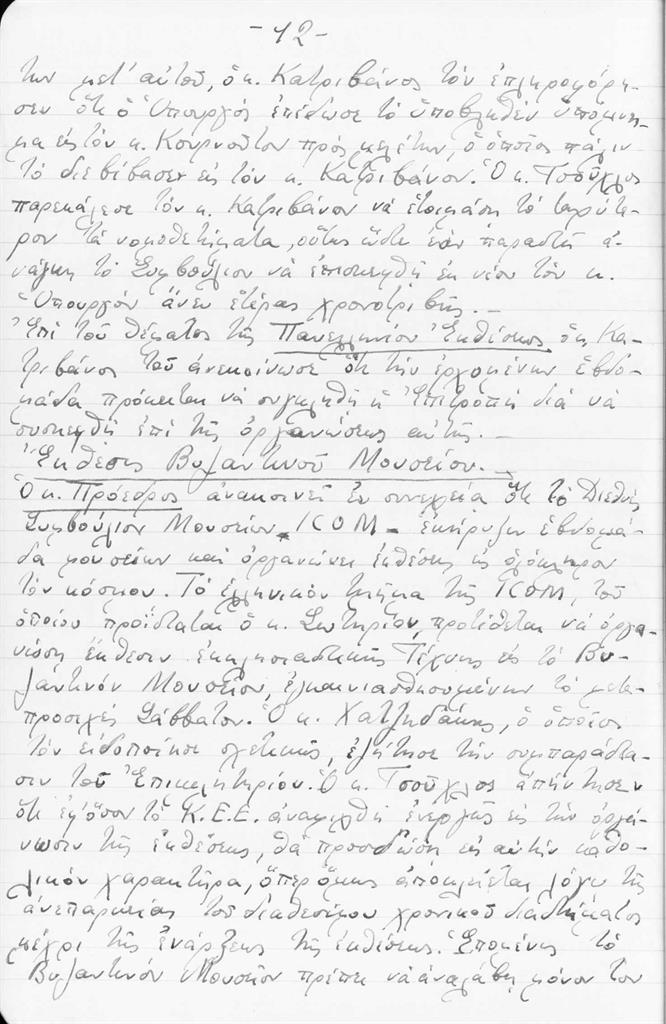 -12-
των μετ' αὐτοῦ, ὁ κ. Κατριβάνος τὸν ἐπληροφόρη-
σεν ὅτι ὁ Ὑπουργὸς ἐπέδωσε τὸ ὑποβληθὲν ὑπόμνη-
μα εἰς τὸν κ. Κουρνοῦτον πρὸς μελέτην, ὁ ὁποῖος πάλιν
τὸ διεβίβασεν εἰς τὸν κ. Κατριβάνον. Ὁ κ. Τσοῦχλος
παρεκάλεσε τὸν κ. Κατριβάνον νὰ ἑτοιμάση τὸ ταχύτε-
ρον τὰ νομοθετήματα, οὕτως ὥστε ἐὰν παραστῆ ἀ-
νάγκη τὸ Συμβούλιον νὰ ἐπισκεφθῆ ἐκ νέου τὸν κ.
Ὑπουργὸν ἄνευ ἑτέρας χρονοτριβῆς.-
Ἐπὶ τοῦ θέματος τῆς Πανελληνίου Ἐκθέσεως ὁ κ. Κα-
τριβάνος τοῦ ἀνεκοίνωσε ὅτι τὴν ἐρχομένην ἑβδο-
μάδα πρόκειται νὰ συγκληθῆ ἡ Ἐπιτροπὴ διὰ νὰ
συσκεφθῆ ἐπὶ τῆς ὀργανώσεως αὐτῆς.-
Ἔκθεσις Βυζαντινοῦ Μουσείου.-
Ὁ κ. Πρόεδρος ἀνακοινεῖ ἐν συνεχεία ὅτι τὸ Διεθνὲς
Συμβούλιον Μουσείων - ICOM - ἐκήρυξεν ἑβδομά-
δα μουσείων καὶ ὀργανώνει ἐκθέσεις εἰς ὁλόκληρον
τὸν κόσμον. Τὸ ἑλληνικὸν τμῆμα τῆς ICOM, τοῦ
ὁποίου προΐσταται ὁ κ. Σωτηρίου, προτίθεται νὰ ὀργα-
νώση ἔκθεσιν ἐκκλησιαστικῆς Τέχνης εἰς τὸ Βυ-
ζαντινὸν Μουσεῖον, ἐγκαινιασθησομένην τὸ μετα-
προσεχὲς Σάββατον. Ὁ κ. Χατζηδάκης, ὁ ὁποῖος
τὸν εἰδοποίησε σχετικῶς, ἐζήτησε τὴν συμπαράστα-
σιν τοῦ Ἐπιμελητηρίου. Ὁ κ. Τσοῦχλος ἀπήντησεν
ὅτι ἐφ' ὅσον τὸ Κ.Ε.Ε. ἀναμιχθῆ ἐνεργῶς εἰς τὴν ὀργά-
νωσιν τῆς ἐκθέσεως, θὰ προσδώση εἰς αὐτὴν καθο-
λικὸν χαρακτῆρα, ὅπερ ὅμως ἀποκλείεται λόγω τῆς
ἀνεπαρκείας τοῦ διαθεσίμου χρονικοῦ διαστήματος
μέχρι τῆς ἐνάρξεως τῆς ἐκθέσεως. Ἑπομένως τὸ
Βυζαντινὸν Μουσεῖον πρέπει νὰ ἀναλάβη μόνον του